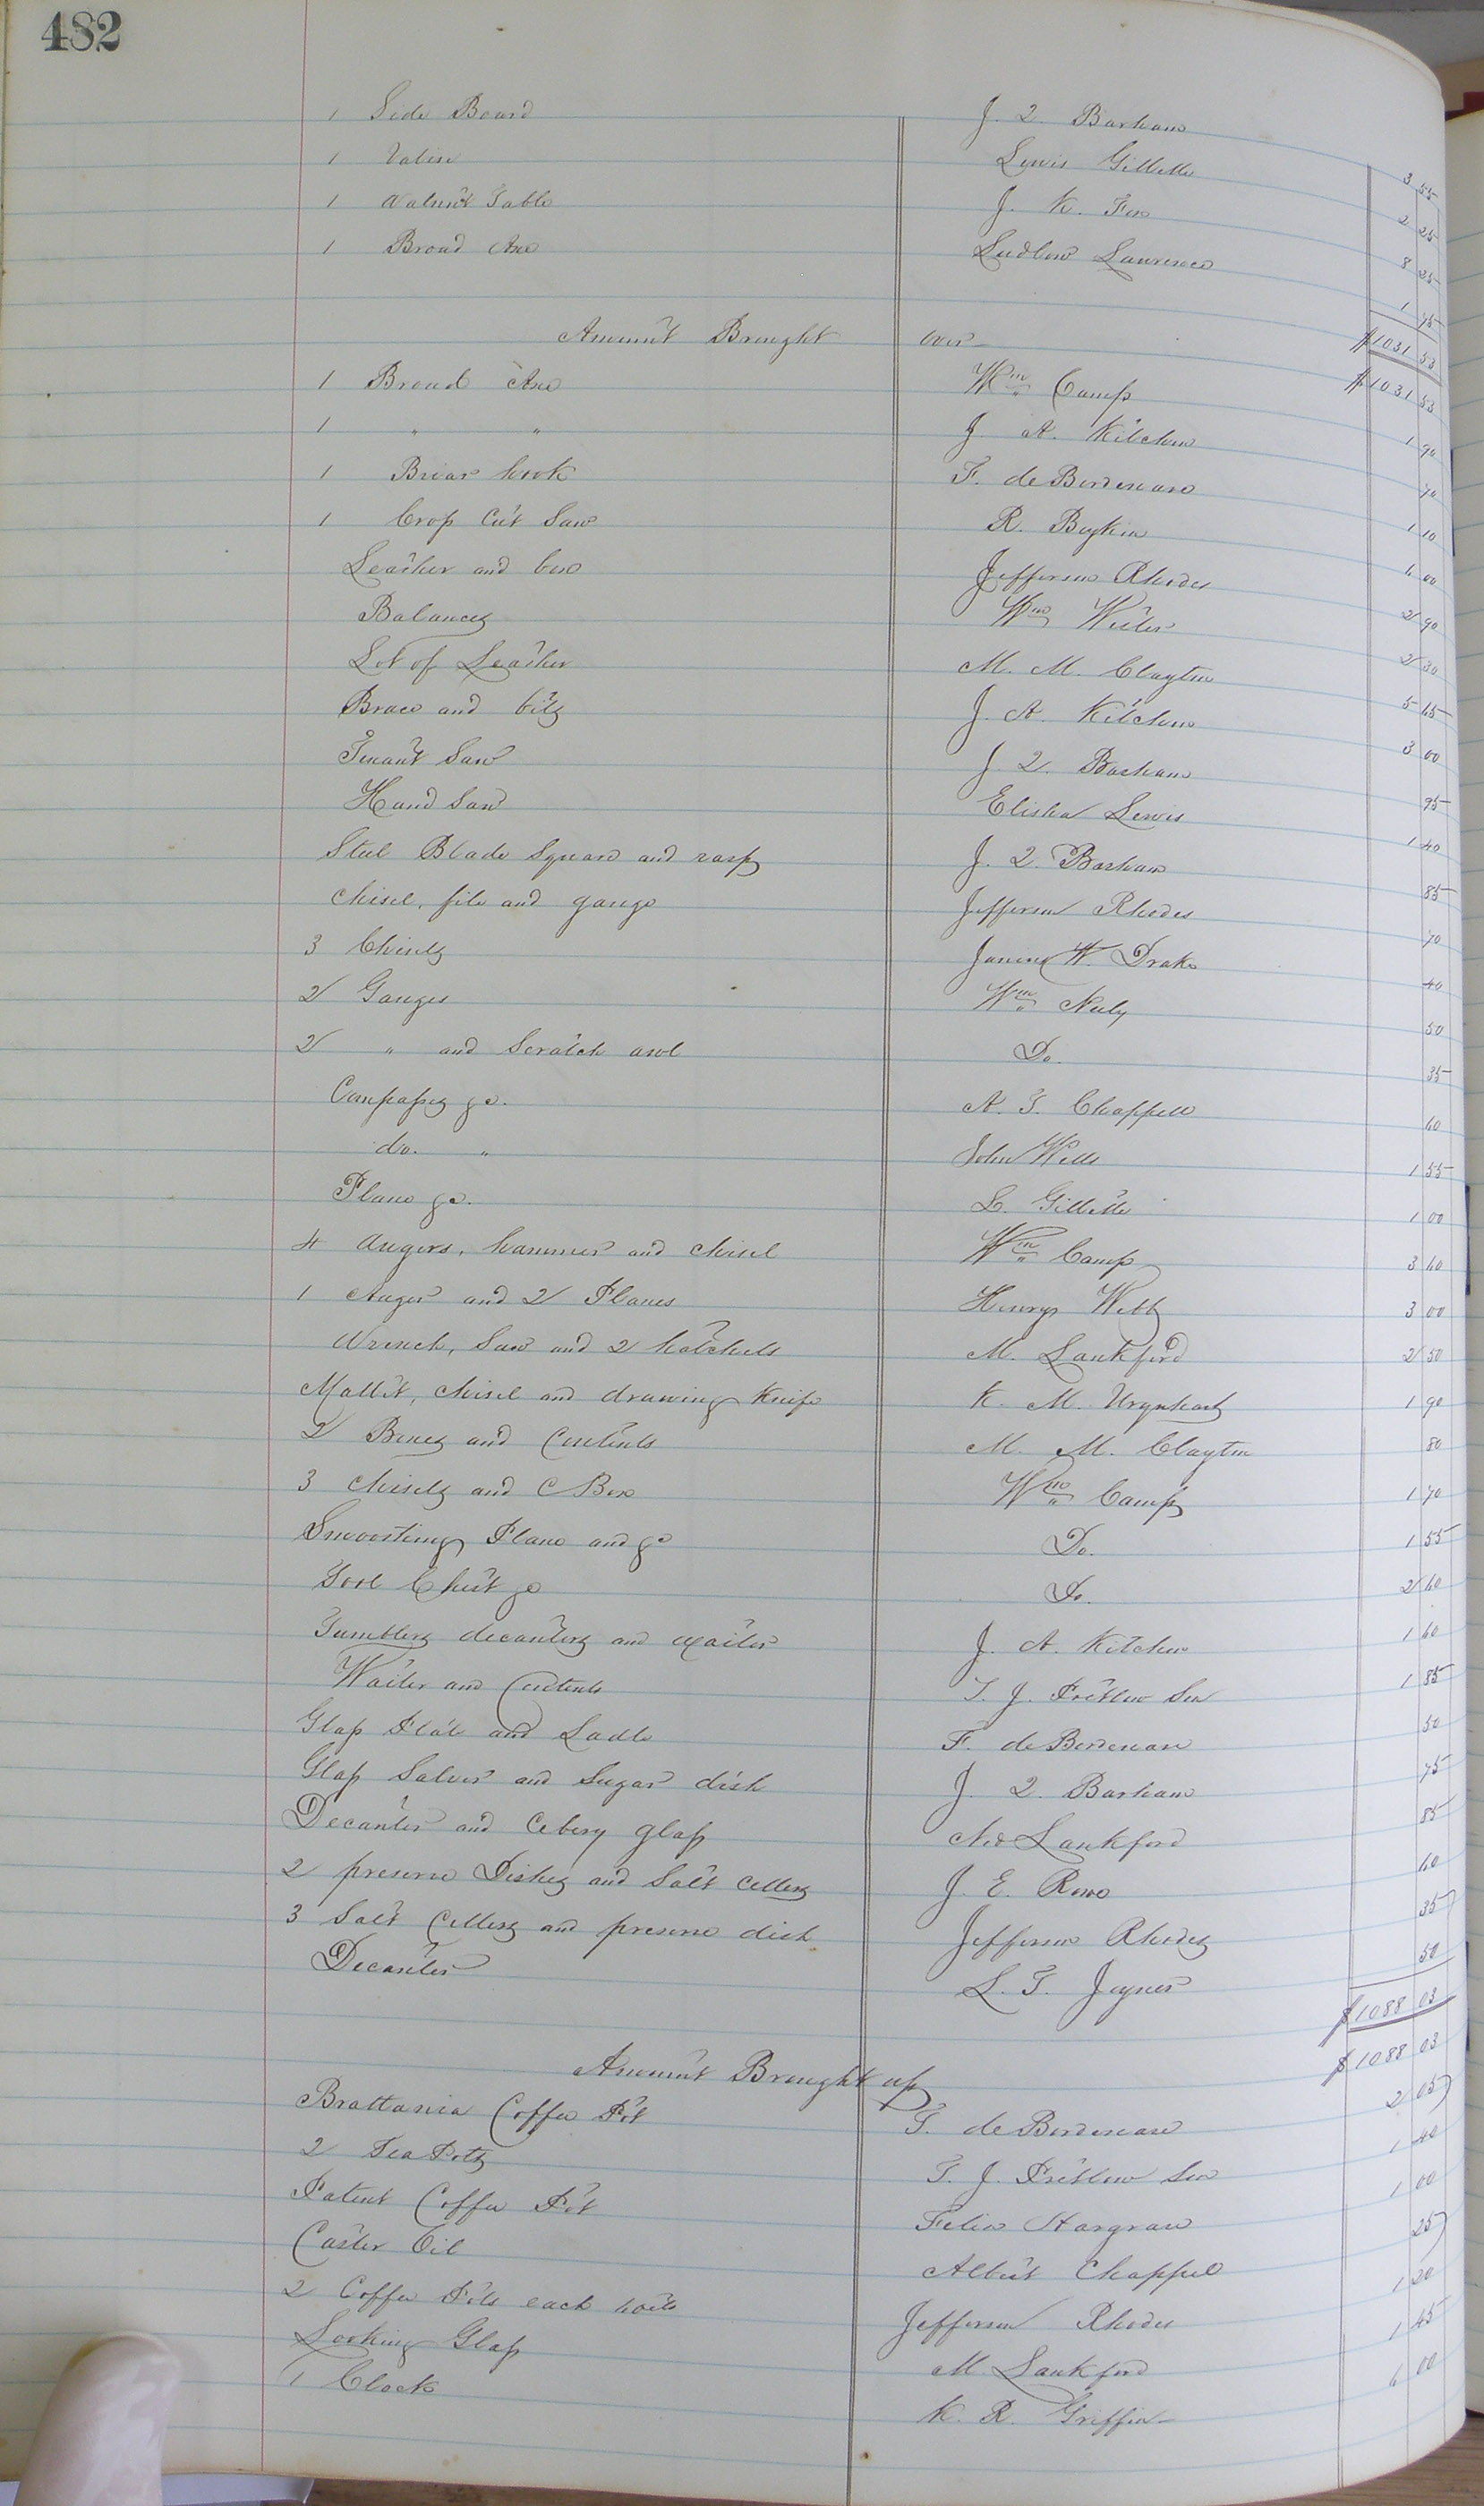 482
1 Side Board J. Q. Barham 3 55
1 Valise Lewis Gillette 2 25
1 Walnut Table J. K. Fox 8 25
1 Broad Axe Ludlow Lawrence 1 75
$1031 53
Amount Brought over $1031 53
1 Broad Axe Wm Camp 1 90
1 " " J. A. Kitchen 70
1 Briar hook F. de Bordenave 1 10
1 Crop Cut Saw R. Boykin 6 00
Leather and box Jefferson Rhodes 2 90
Balances Wm 2 30
Lot of Leather M. M. Clayton 5 65
Brace and bits J. A. Kitchen 3 00
Tenant Saw J. Q. Barham 95
Hand Saw Elisha Lewis 1 40
Steel Blade Square and rasp J. Q. Barham 85
Chisel, file and gauge Jefferson Rhodes 70
3 Chisels James W. Drake 40
2 Gauges Wm Neely 50
2 " and Scratch awl Do. 35
Compasses &c. A. T. Chappell 60
do. " John Wells 1 55
Plane &c. L. Gillette 1 00
4 Augers, hammer and chisel Wm Camp 3 60
1 Auger and 2 Planes Henry Webb 3 00
Wrench, Saw and 2 hatchets M. Lankford 2 50
Mallet, chisel and drawing Knife K. M. Urquhart 1 90
2 Boxes and Contents M. M. Clayton 80
3 chisels and Box Wm Camp 1 70
Smoothing Plane and &c Do. 1 55
Tool Chest &c Do. 2 60
Tumblers decanters and waiter J. A. Kitchen 1 60
Waiter and Contents T. J. Pretlow Sen 1 85
Glass Plate and Ladle F. de Bordenave 50
Glass Salver and Sugar dish J. Q. Barham 75
Decanter and Celery glass Ned Lankford 85
2 preserve Dishes and Salt Cellers J. E. Rowe 60
3 Salt Cellers and preserve dish Jefferson Rhodes 35
Decanter L. T. Joyner 50
$1088 03
Amount Brought up $1088 03
Brattania Coffee Pot F. de Bordenave 2 05
2 Tea Pots T. J. Pretlow Sen 1 40
Patent Coffee Pot Felix Hargrave 1 00
Caster Oil Albert Chappel 25
2 Coffee Pots each Jefferson Rhodes 1 20
Looking Glass M Lankford 1 45
1 Clock K. R. Griffin 6 00